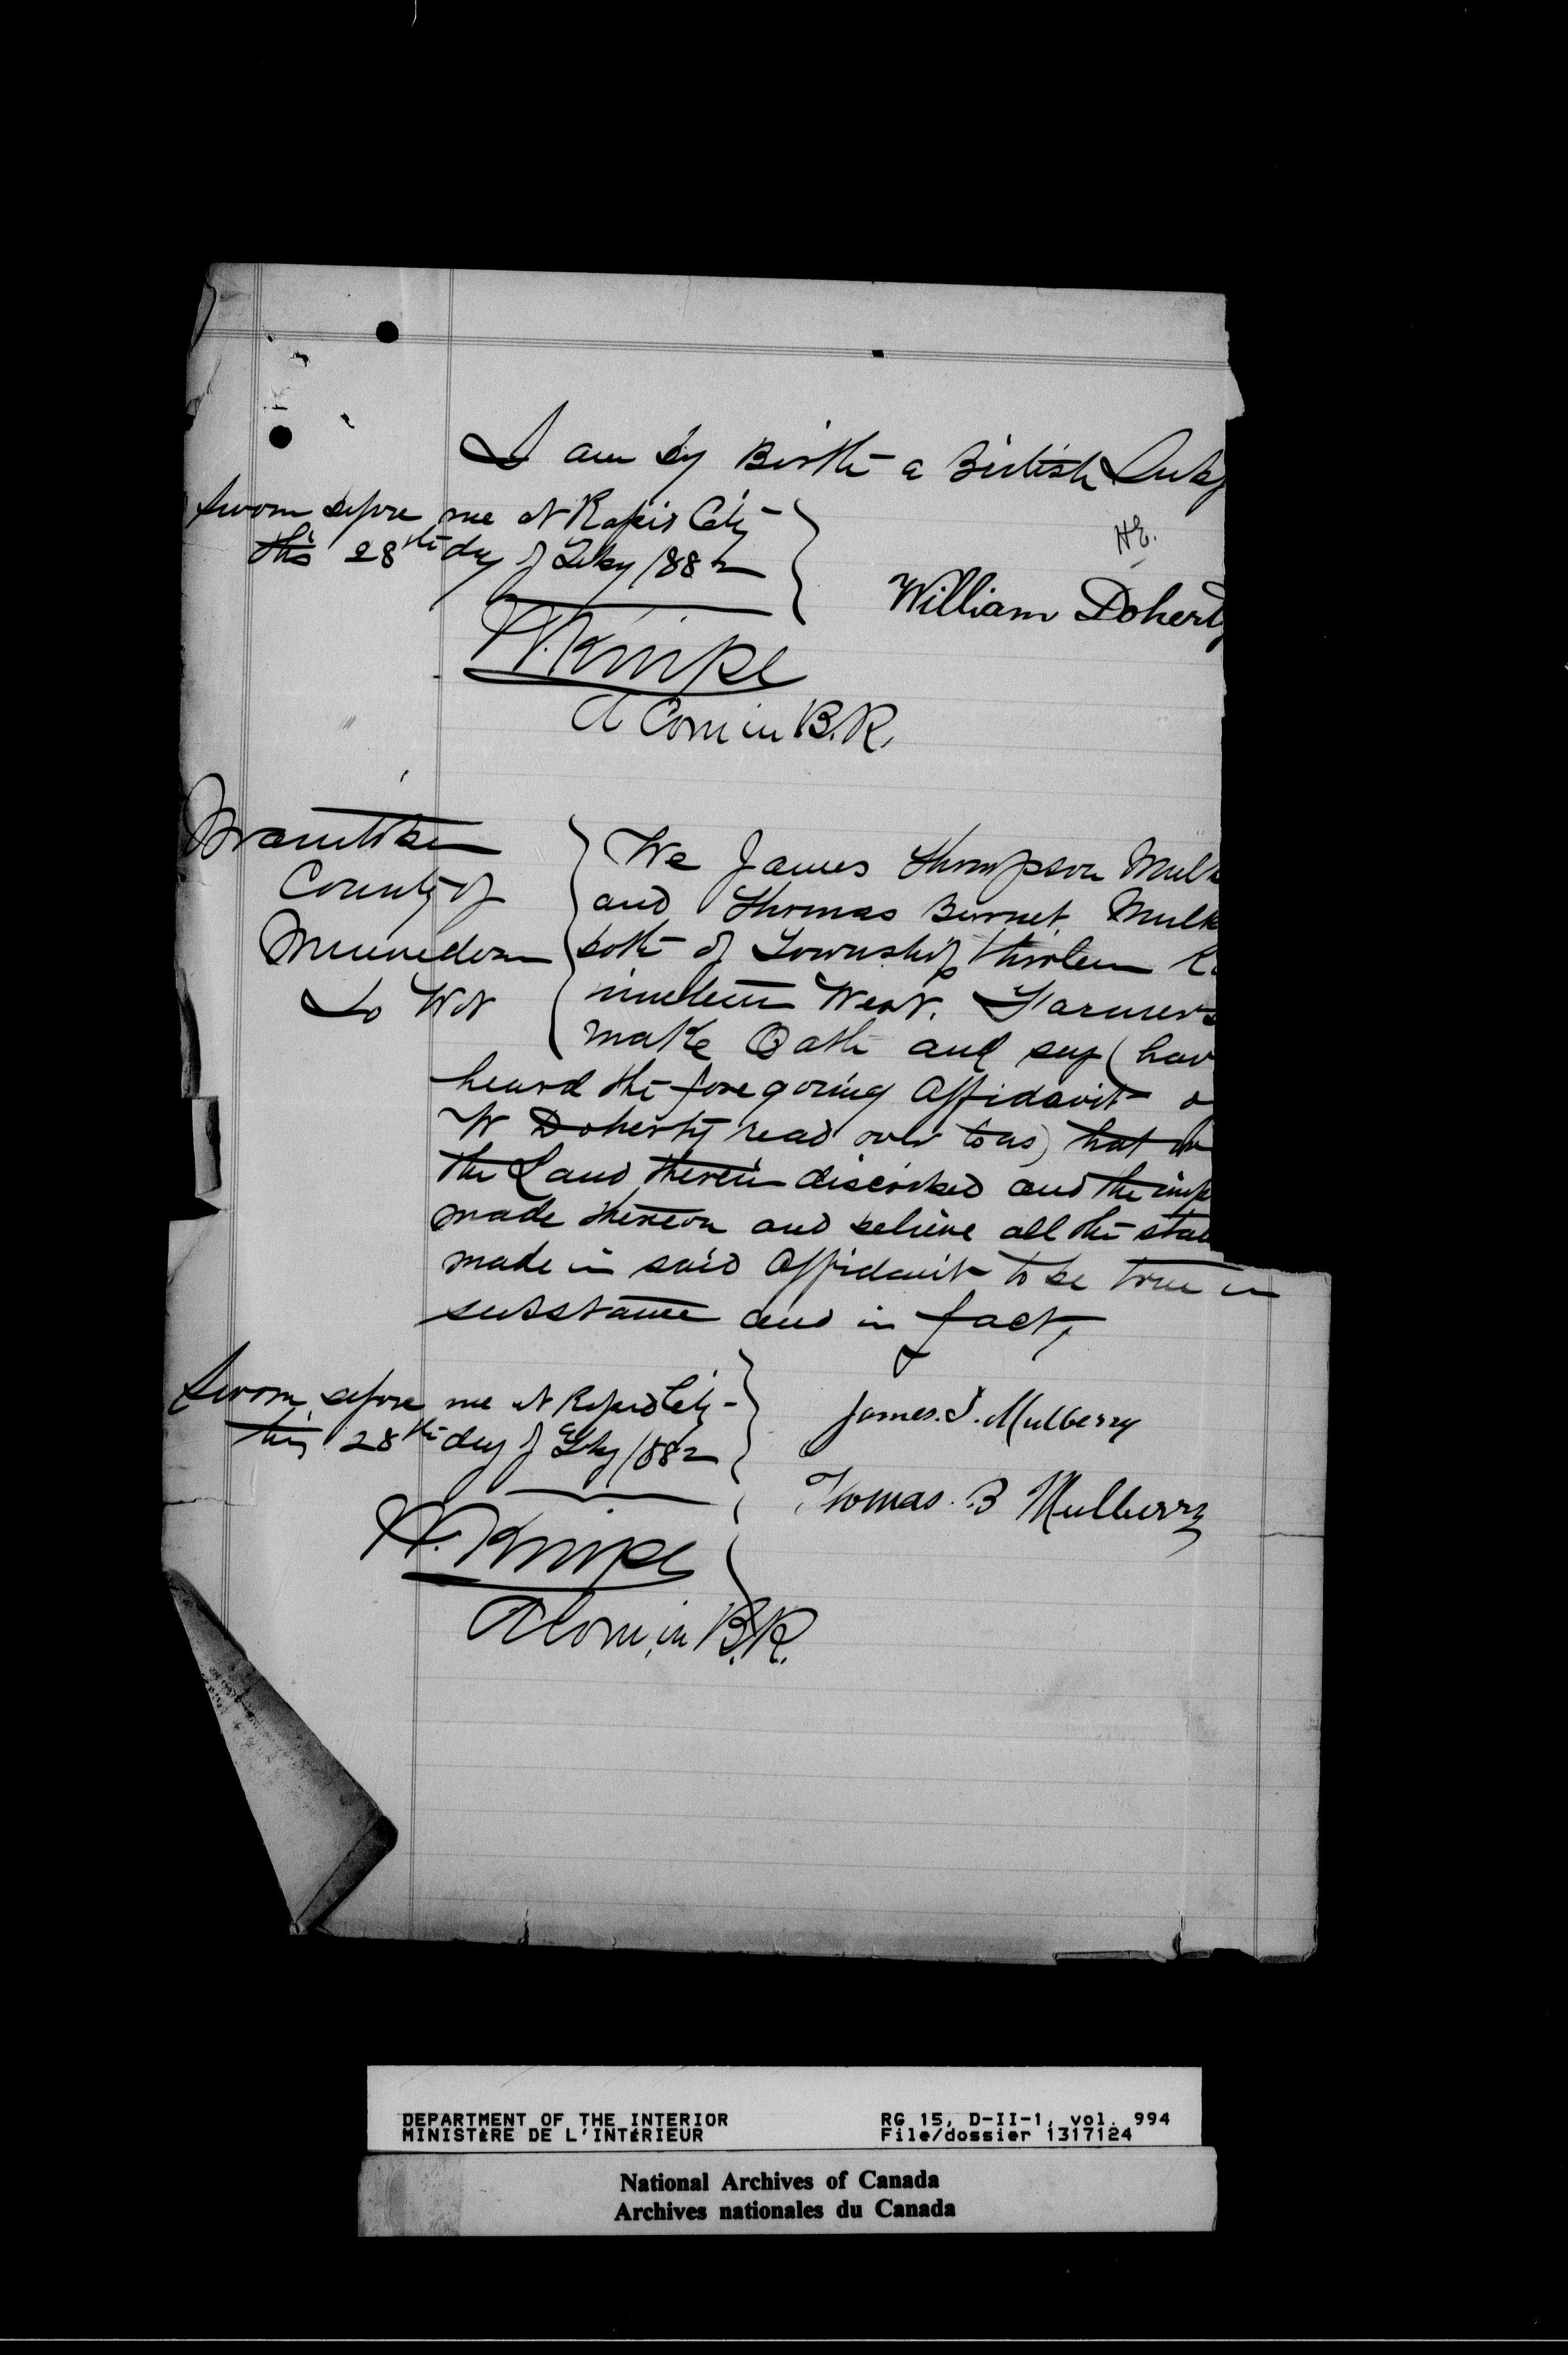 I am by Birth a British Subj
Sworn before me at Rapid City
this 28th day of Feby 1882
HE.
William Doherty
H. Knipe
A Com in B.R.
Manitoba
County of
Minnedosa
To Wit
We James Thompson Mulb
and Thomas Burnet Mulb
both of Township thirteen Ra
nineteen West. Farmers
make Oath and say (hav
heard the foregoing Affidavit o
W Doherty read over to us) that
the Land therein discribed and the imp
made thereon and believe all the stat
made in said Affidavit to be true in
substance and in fact,
Sworn before me at Rapid City
this 28th day of Feby 1882
James. T. Mulberry
Thomas. B Mulberry
H. Knipe
A Com, in B.R.
DEPARTMENT OF THE INTERIOR
MINISTÈRE DE L'INTÉRIEUR
RG 15, D-II-1, vol. 994
File/dossier 1317124
National Archives of Canada
Archives nationales du Canada